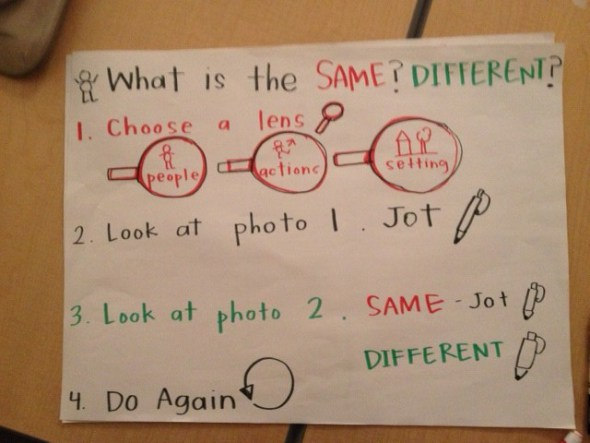 What is the SAME? DIFFERENT?
1. Choose a lens
people actions setting
2. Look at photo 1. Jot
3. Look at photo 2. SAME - Jot
DIFFERENT
4. Do Again